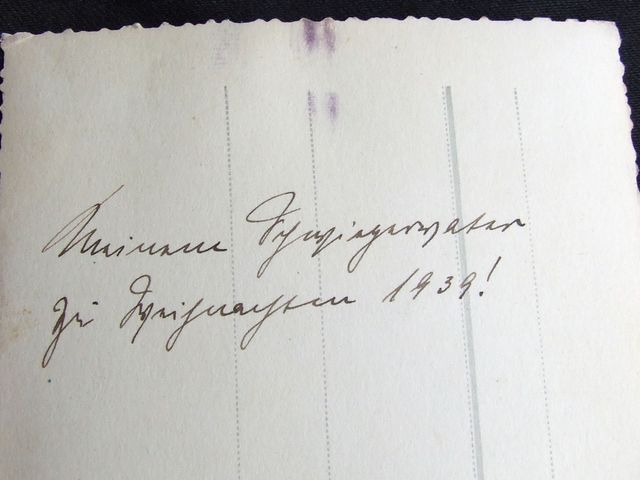 Meinem Schwiegervater
zu Weihnachten 1939!